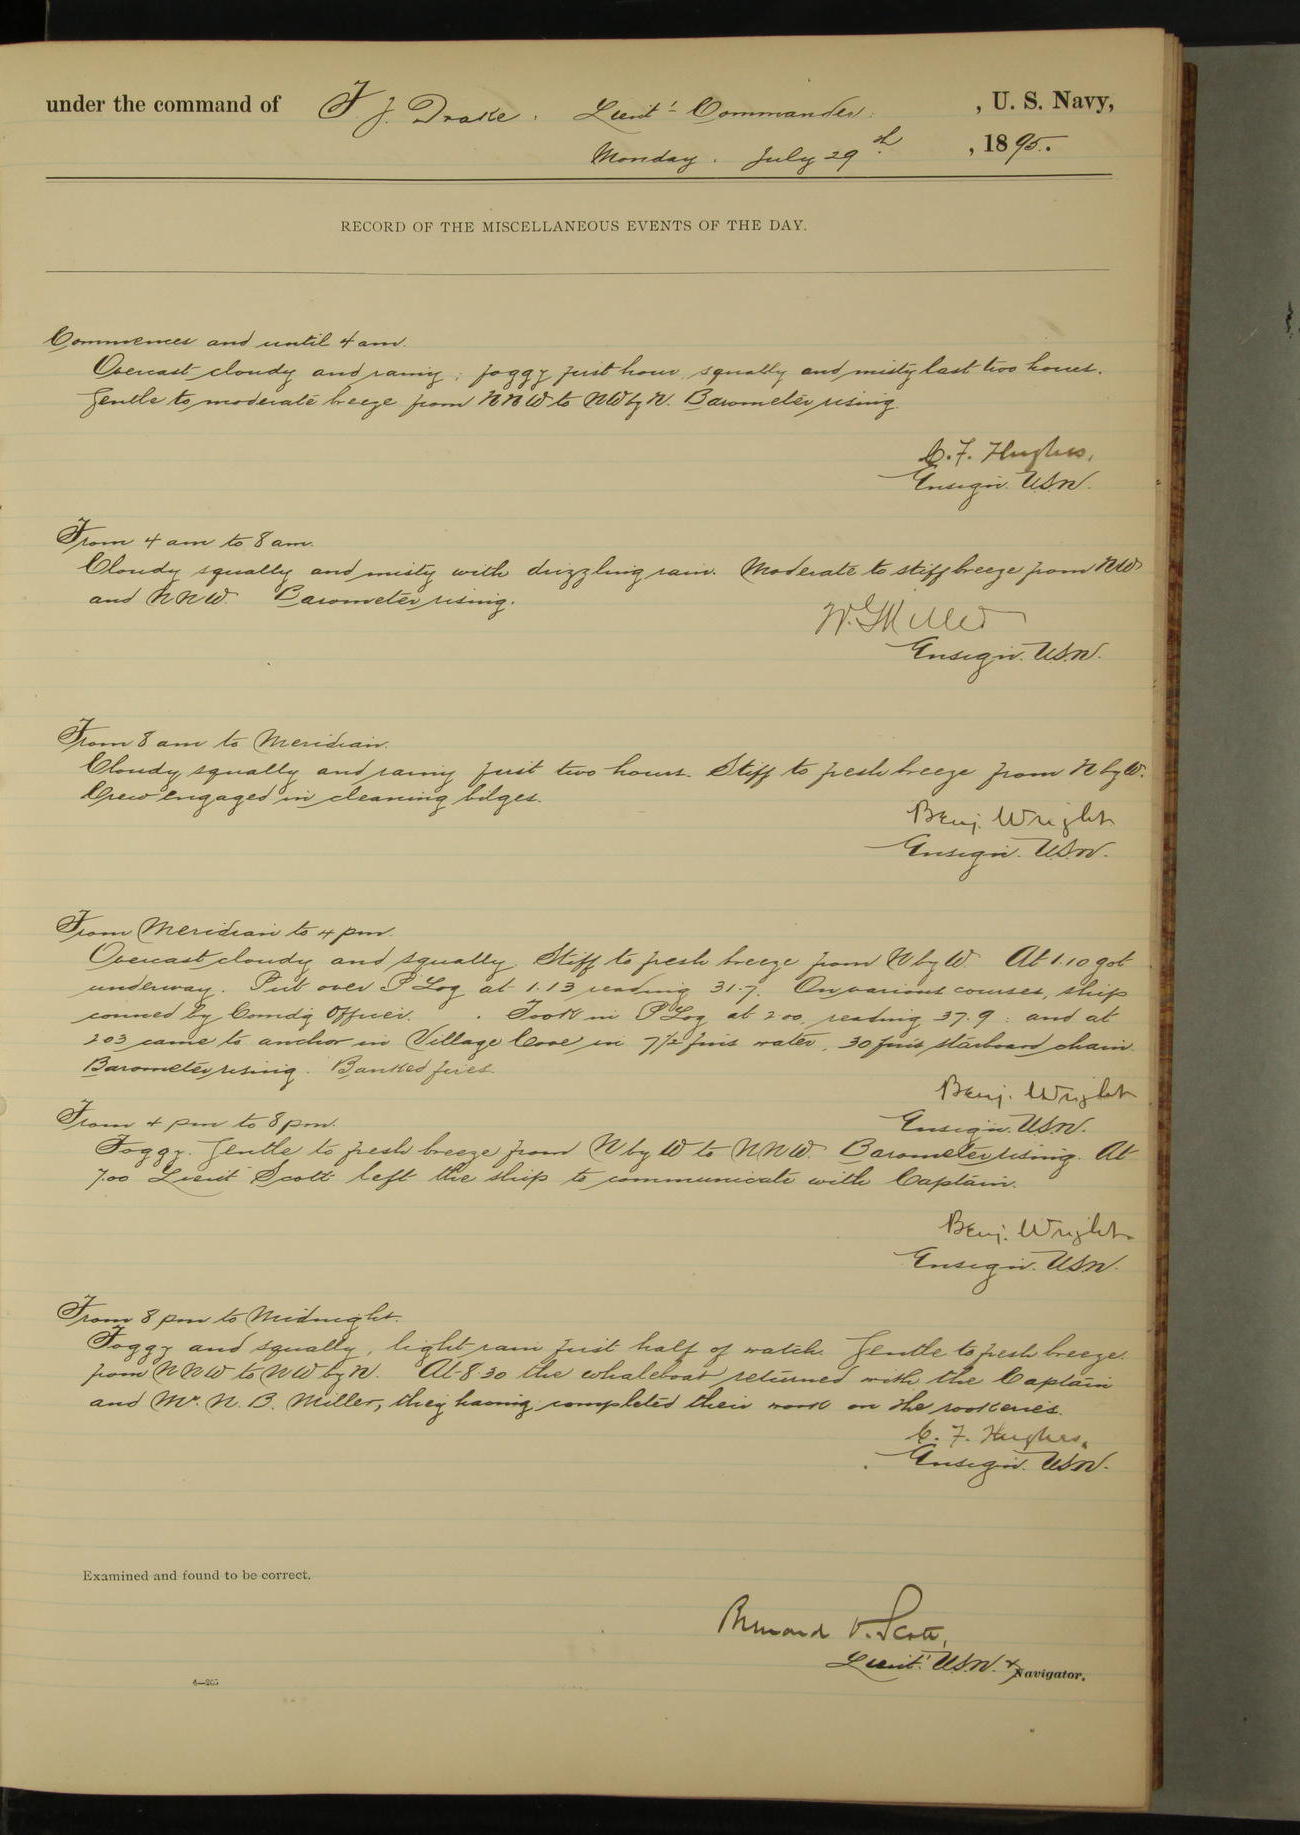 under the command of F. J. Drake. Lieut. Commander. , U. S. Navy,
Monday. July 29th. , 1895.
RECORD OF THE MISCELLANEOUS EVENTS OF THE DAY.
Commences and until 4 am.
Overcast cloudy and rainy; foggy first hour, squally and misty last two hours.
Gentle to moderate breeze from NNW to NW by N. Barometer rising.
C. F. Hughes,
Ensign. U.S.N.
From 4 am to 8 am.
Cloudy squally and misty with drizzling rain. Moderate to stiff breeze from NW
and NNW. Barometer rising.
W. G. Miller
Ensign. U.S.N.
From 8 am to Meridian.
Cloudy squally and rainy first two hours. Stiff to fresh breeze from N by W.
Crew engaged in cleaning bilges.
Benj. Wright
Ensign. U.S.N.
From Meridian to 4 pm.
Overcast cloudy and squally. Stiff to fresh breeze from N by W. At 1.10 got
underway. Put over P Log at 1.13 reading 31.7. On various courses, ship
conned by Comdg Officer. Took in P Log at 2 00, reading 37.9: and at
2 03 came to anchor in Village Cove in 7½ fms water, 30 fms starboard chain.
Barometer rising. Banked fires.
Benj. Wright
Ensign. U.S.N.
From 4 pm to 8 pm.
Foggy. Gentle to fresh breeze from N by W to NNW. Barometer rising. At
7.00 Lieut Scott left the ship to communicate with Captain.
Benj. Wright.
Ensign. U.S.N.
From 8 pm to Midnight.
Foggy and squally, light rain first half of watch. Gentle to fresh breeze.
from NNW to NW by N. At 8.30 the whaleboat returned with the Captain
and Mr. N. B. Miller, they having completed their work on the rookeries.
C. F. Hughes.
Ensign. U.S.N.
Examined and found to be correct.
Bernard O. Scott,
Lieut. U.S.N. & Navigator.